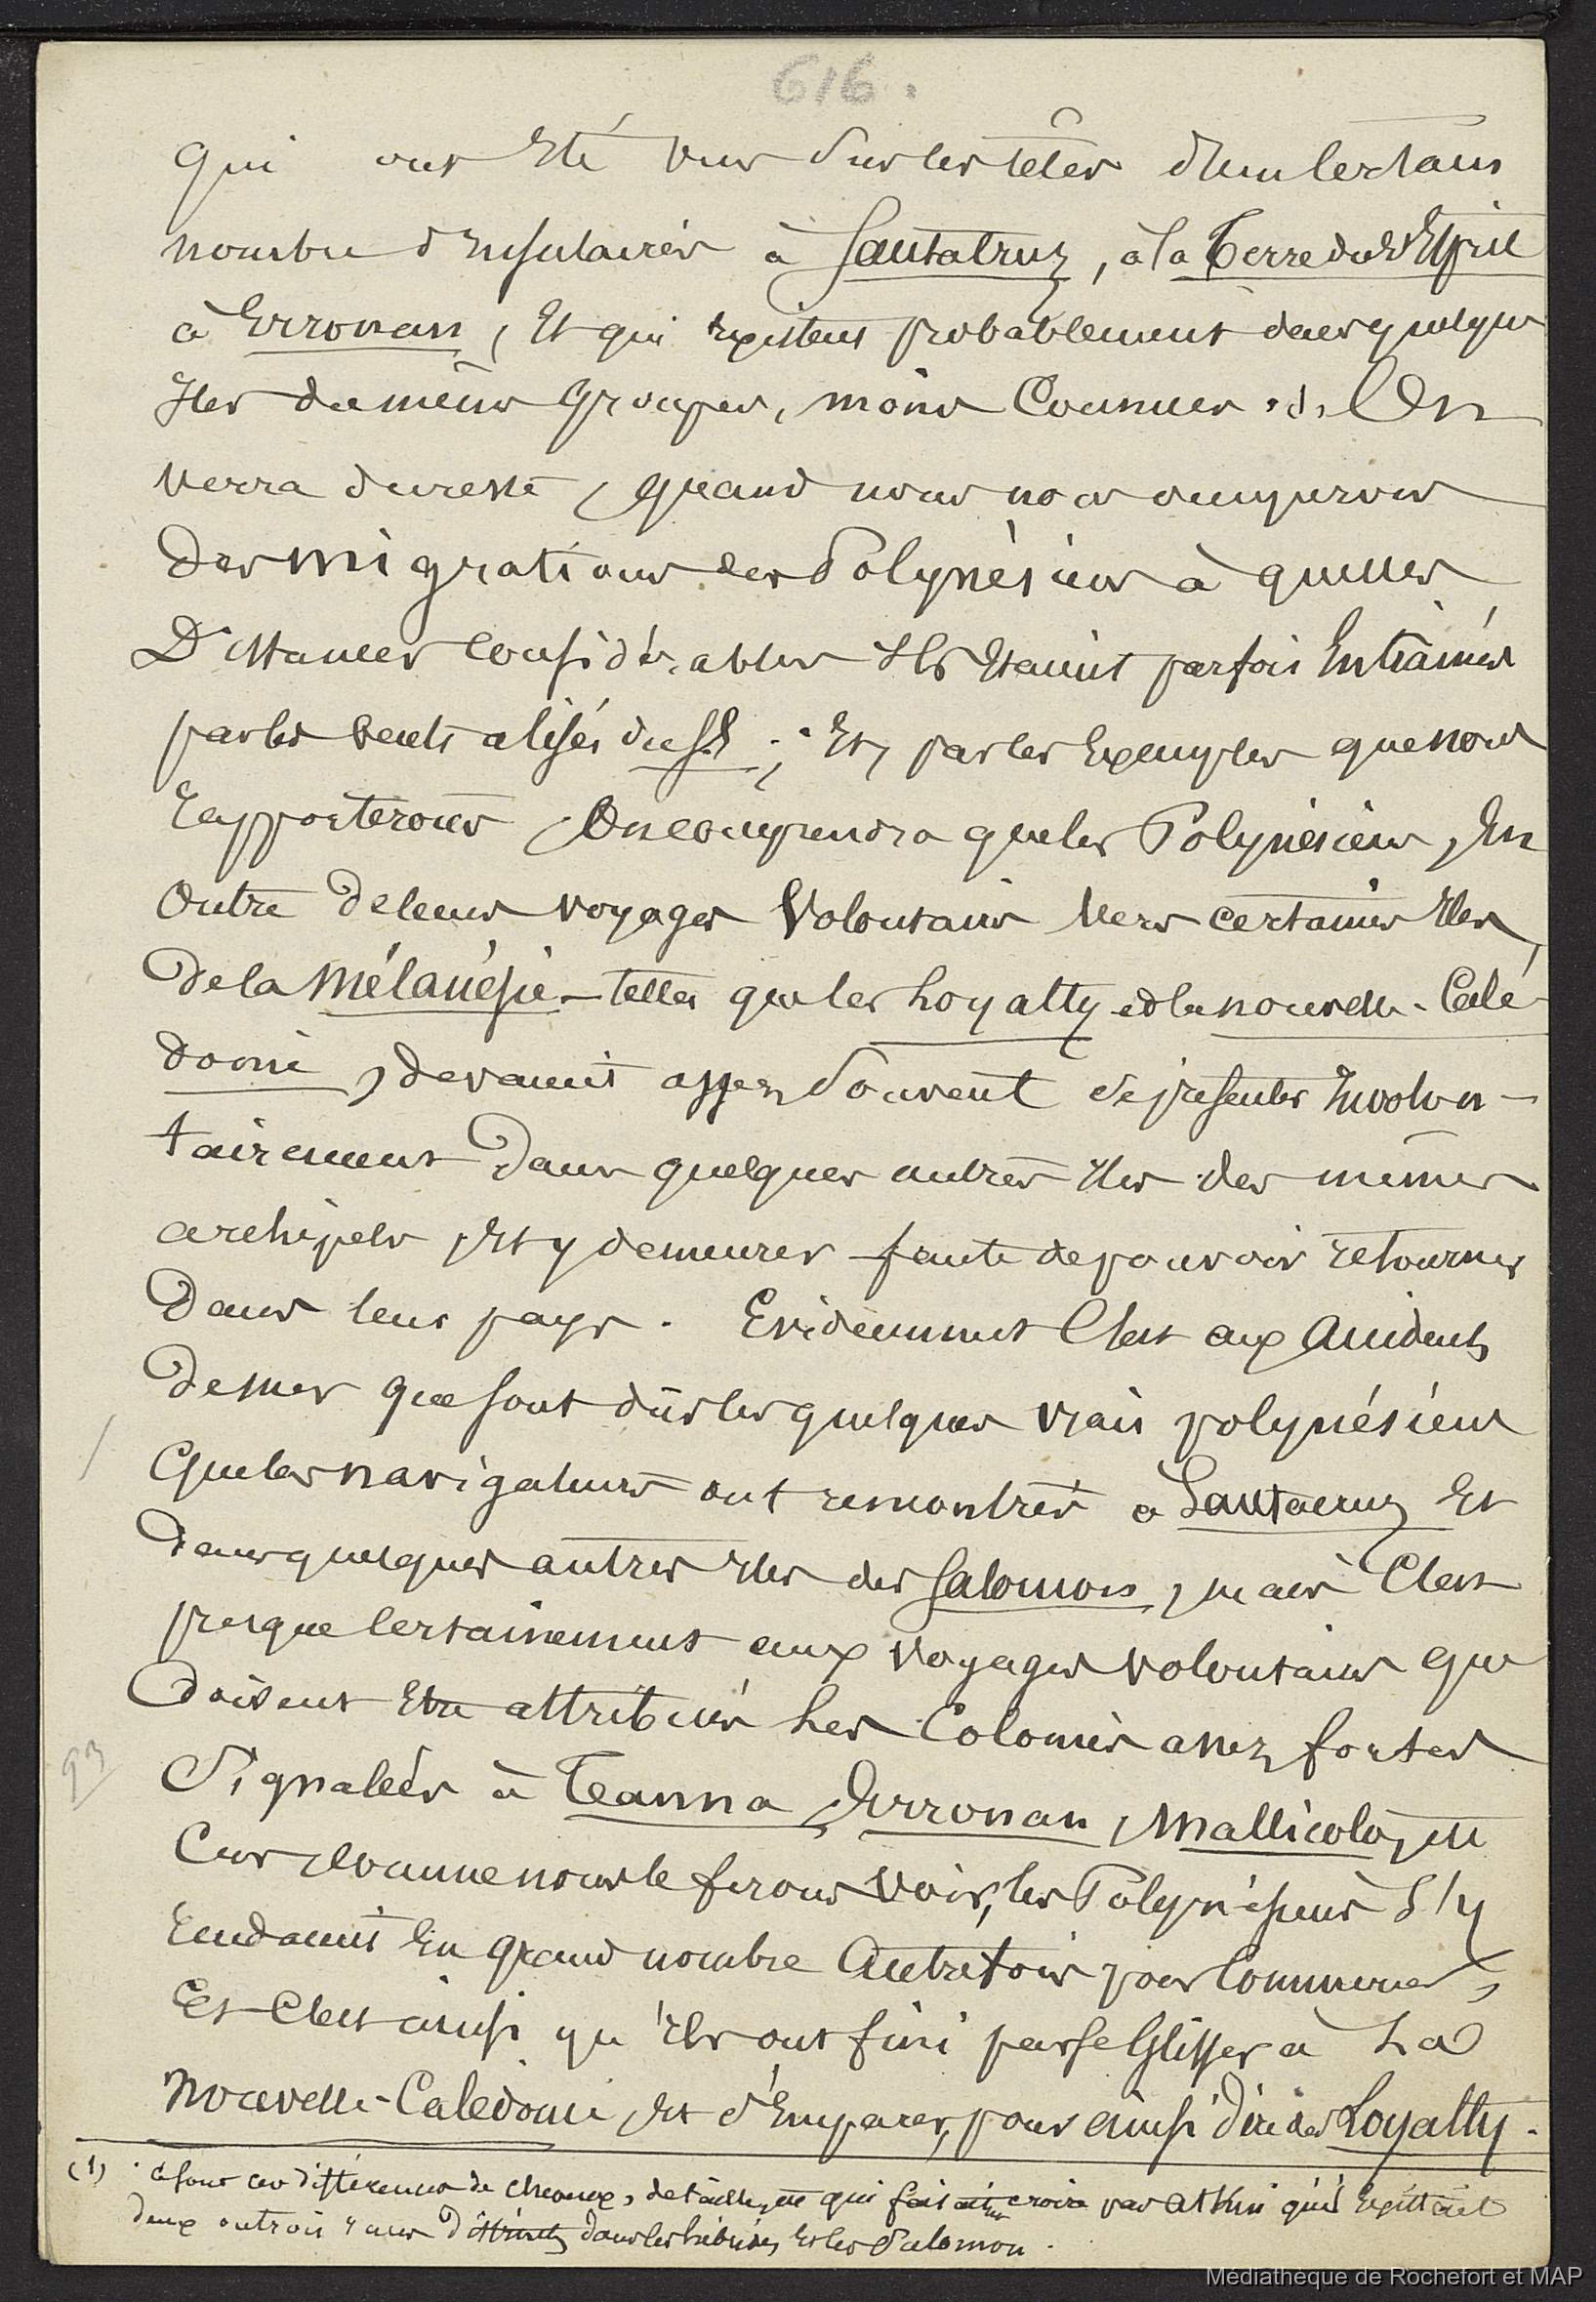 616.
qui ont été vus sur les têtes d'un certain
nombre d'insulaires à Santa Cruz, à la Terre du St Esprit
à Erronan, et qui existent probablement dans quelques
îles du même groupe, moins connues. (1). On
verra du reste, quand nous nous occuperons
des migrations des Polynésiens à quelles
distances considérables ils étaient parfois entraînés
par les vents alisés du S.E.; et, par les exemples que nous
rapporterons, on comprendra que les Polynésiens, en
outre de leurs voyages volontaires vers certaines îles
de la Mélanésie - telles que les Loyalty et la nouvelle-Calé-
donie, devaient assez souvent se présenter involon-
tairement dans quelques autres îles des mêmes
archipels, et y demeurer faute de pouvoir retourner
dans leur pays. Evidemment c'est aux accidents
de mer que sont dûs les quelques vrais polynésiens
que les navigateurs ont rencontrés à Santa Cruz et
dans quelques autres îles des Salomon, mais c'est
presque certainement aux voyages volontaires que
doivent être attribués les colonies assez fortes
93
signalées à Tanna, Erronan, Mallicolo, etc
Car, comme nous le ferons voir, les Polynésiens s'y
rendaient en grand nombre autrefois pour commercer,
et c'est ainsi qu'ils ont fini par se glisser à la
Nouvelle-Calédonie, et s'emparer, pour ainsi dire des Loyalty.
(1) ce sont ces différences de cheveux, de taille, etc qui croire par qu'il existait
deux ou trois races distinctes dans les hébrides et les Salomon.
Médiathèque de Rochefort et MAP